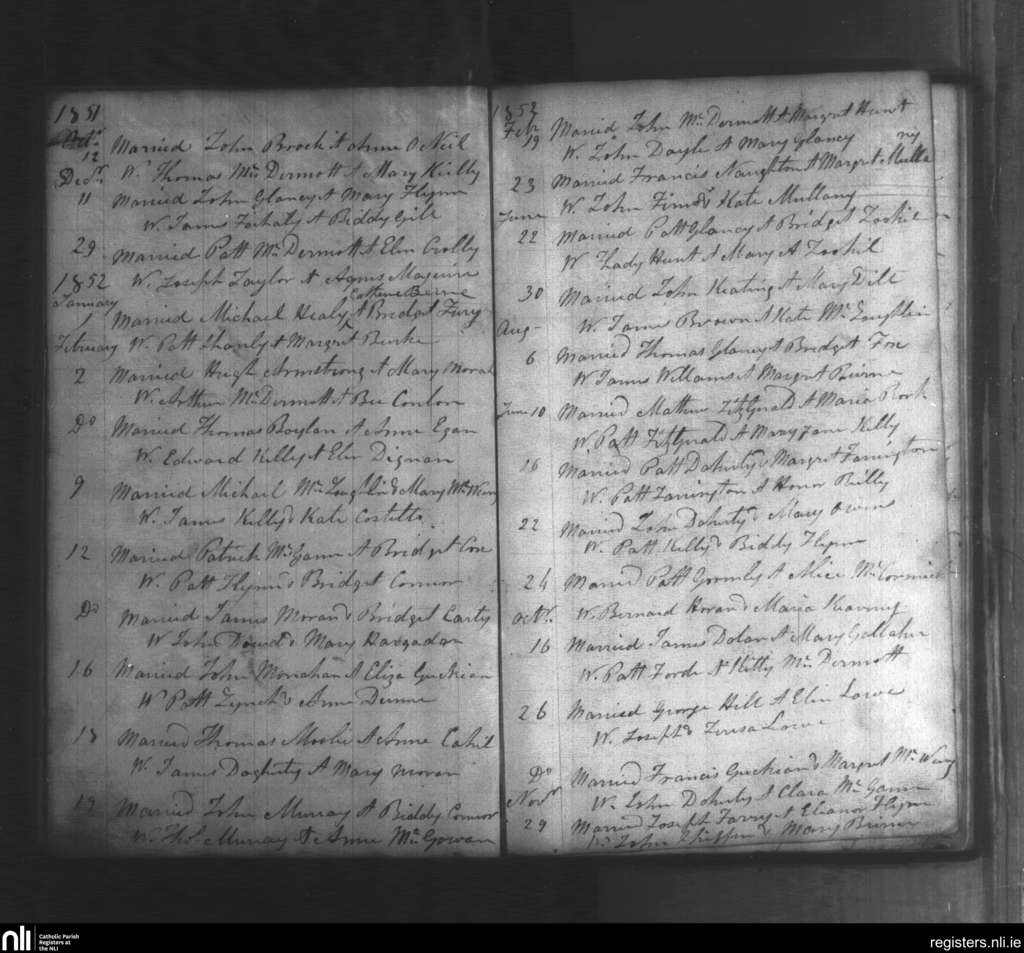 1851
Octr
12 Married John Brock & Anne O Neil
Decr. W. Thomas Mc Dermott & Mary Reilly
11 Married John Glancy & Mary Flynn
W. James Fahaty & Biddy Gill
29 Married Patt Mc Dermott & Elen Crolly
1852 W. Joseph Taylor & Agnes Maguire
January Cathene Beirne
1 Married Michael Healy & Bridget Fury
February W. Patt Shanly & Margret Burke
2 Married Hugh Armstrong & Mary Moral
W. Arthur Mc Dermott & Bee Conlon
Do Married Thomas Boylan & Anne Egan
W. Edward Kelly & Elen Dignan
9 Married Michael Mc Loughlin & Mary Mc
W. James Kelly & Kate Costello
12 Married Patrick Mc Gann & Bridget Cox
W. Patt Flynn & Bridget Connor
Do Married James Moran & Bridget Carty
W John Dowd & Mary Hargadon
16 Married John Monahan & Eliza Guckian
W Patt Lynch & Anne Dunne
18 Married Thomas & Anne Cahil
W. James Dogherty & Mary Moran
19 Married John Murray & Biddy Connor
W. Thos. Murray & Anne Mc Gowan
1852
Feby
19 Married John Mc Dermott & Margret Hunt
W. John Doyle & Mary Glancy
23 Married Francis Naughton & Margret Mulla
ny
W. John Finn & Kate Mullany
June
22 Married Patt Glancy & Bridget
W Thady Hunt & Mary A
30 Married John Keating & Mary Dill
Aug W. James Brown & Kate Mc Loughlin
6 Married Thomas Glancy & Bridget Fox
W James Williams & Margret Beirne
June 10 Married Mathew Fitzgerald & Maria Rork
W. Patt Fitzgerald & Mary Jane Kelly
16 Married Patt Doherty & Margret Farrington
W. Patt Farrington & Honor Reilly
22 Married John Doherty & Mary Owens
W. Patt Kelly & Biddy Flynn
24 Married Patt Gormly & Alice Mc Cormick
Octr. W. Bernard Horan & Maria Keaveny
16 Married James Dolan & Mary Gallahr
W. Patt Forde & Kitty Mc Dermott
26 Married George Hill & Elen Lowe
W. Joseph & Teresa Lowe
Do Married Francis Guckian & Margret Mc
Novr W. John Doherty & Clara Mc Gann
29 Married Joseph Farry & Eleanor Flynn
W. John Griffin & Mary Beirne
nli
Catholic Parish
Registers at
the NLI
registers.nli.ie